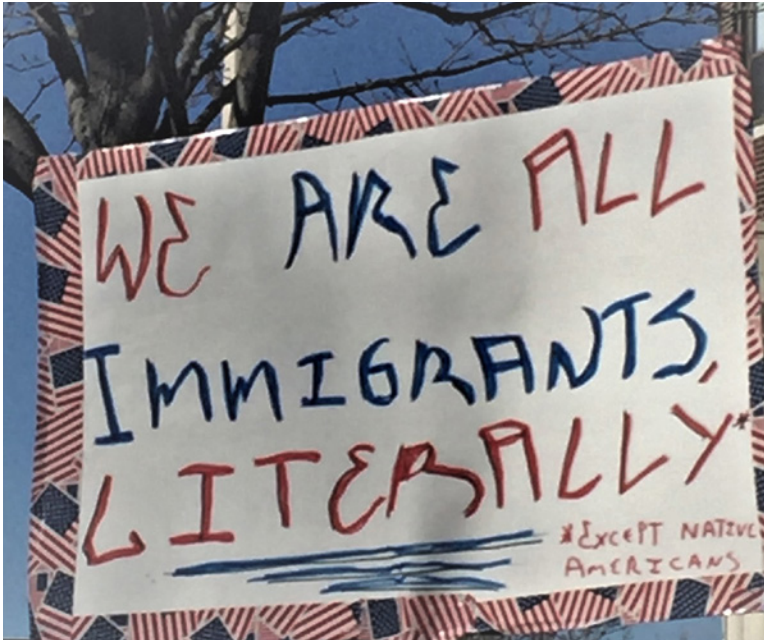 WE ARE ALL
IMMIGRANTS,
LITERALLY*
*EXCEPT NATIVE
AMERICANS